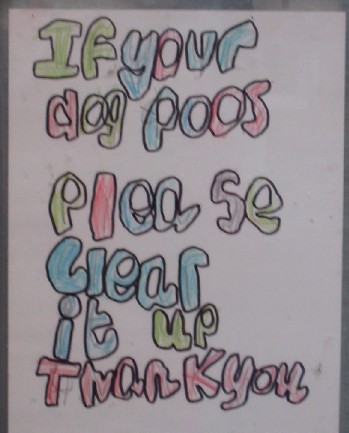 If your
dog poos
Please
Clear
it up
Thank you